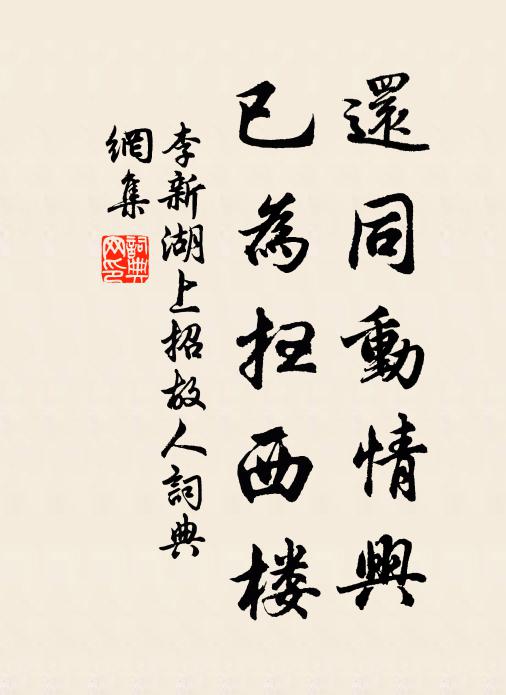 還同動情興
已為抂西楼
李新湖上招故人詞典
網集
詞典
网印